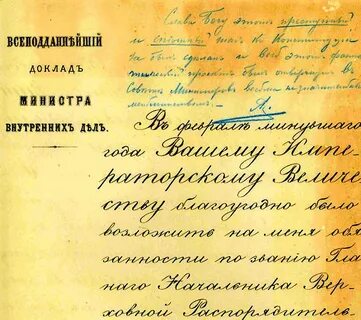 ВСЕПОДДАННѢЙШІЙ
ДОКЛАДЪ
МИНИСТРА
ВНУТРЕННИХЪ ДѢЛЪ.
Слава Богу этотъ преступный
и спѣшный шагъ къ конституціи
не былъ сдѣланъ и весь этотъ фанта-
стическій проектъ былъ отвергнутъ въ
Совѣтѣ Министровъ весьма незначительнымъ
меньшинствомъ.
А.
Въ февралѣ минувшаго
года Вашему Импе-
раторскому Величе-
ству благоугодно было
возложить на меня обя
занности по званію Гла
наго Начальника Вер-
ховной Распорядитель